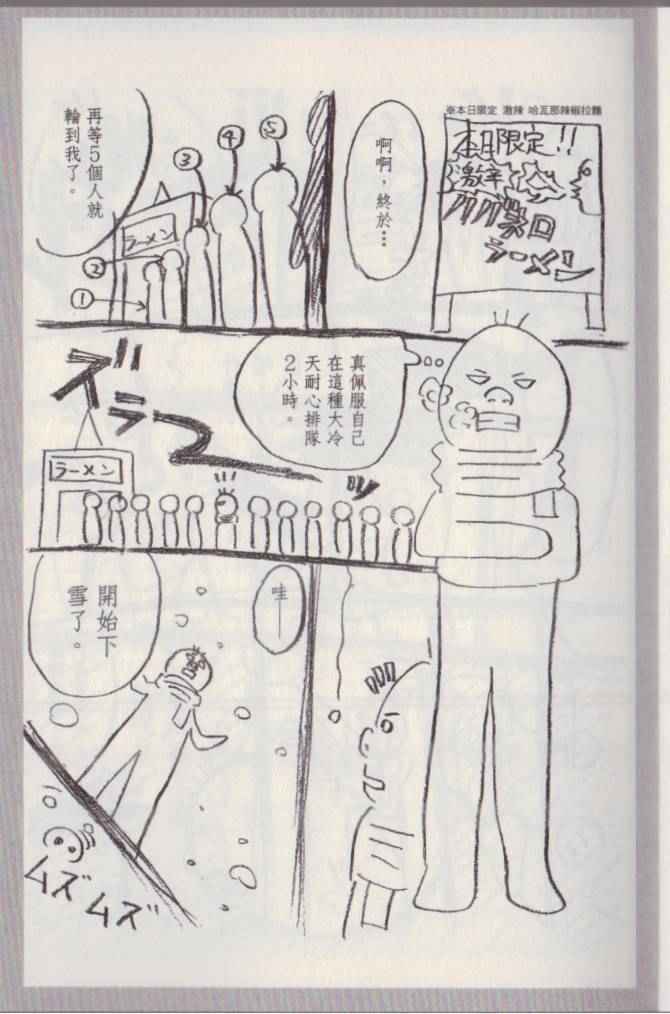 ※本日限定 激辣 哈瓦那辣椒拉麵
本日限定!!
激辛
ラーメン
啊啊,終於…
⑤
④
③
②
①
ラーメン
再等5個人就
輪到我了。
真佩服自己
在這種大冷
天耐心排隊
2小時。
ズラーッ
ラーメン
哇——
開始下
雪了。
ムズ
ムズ